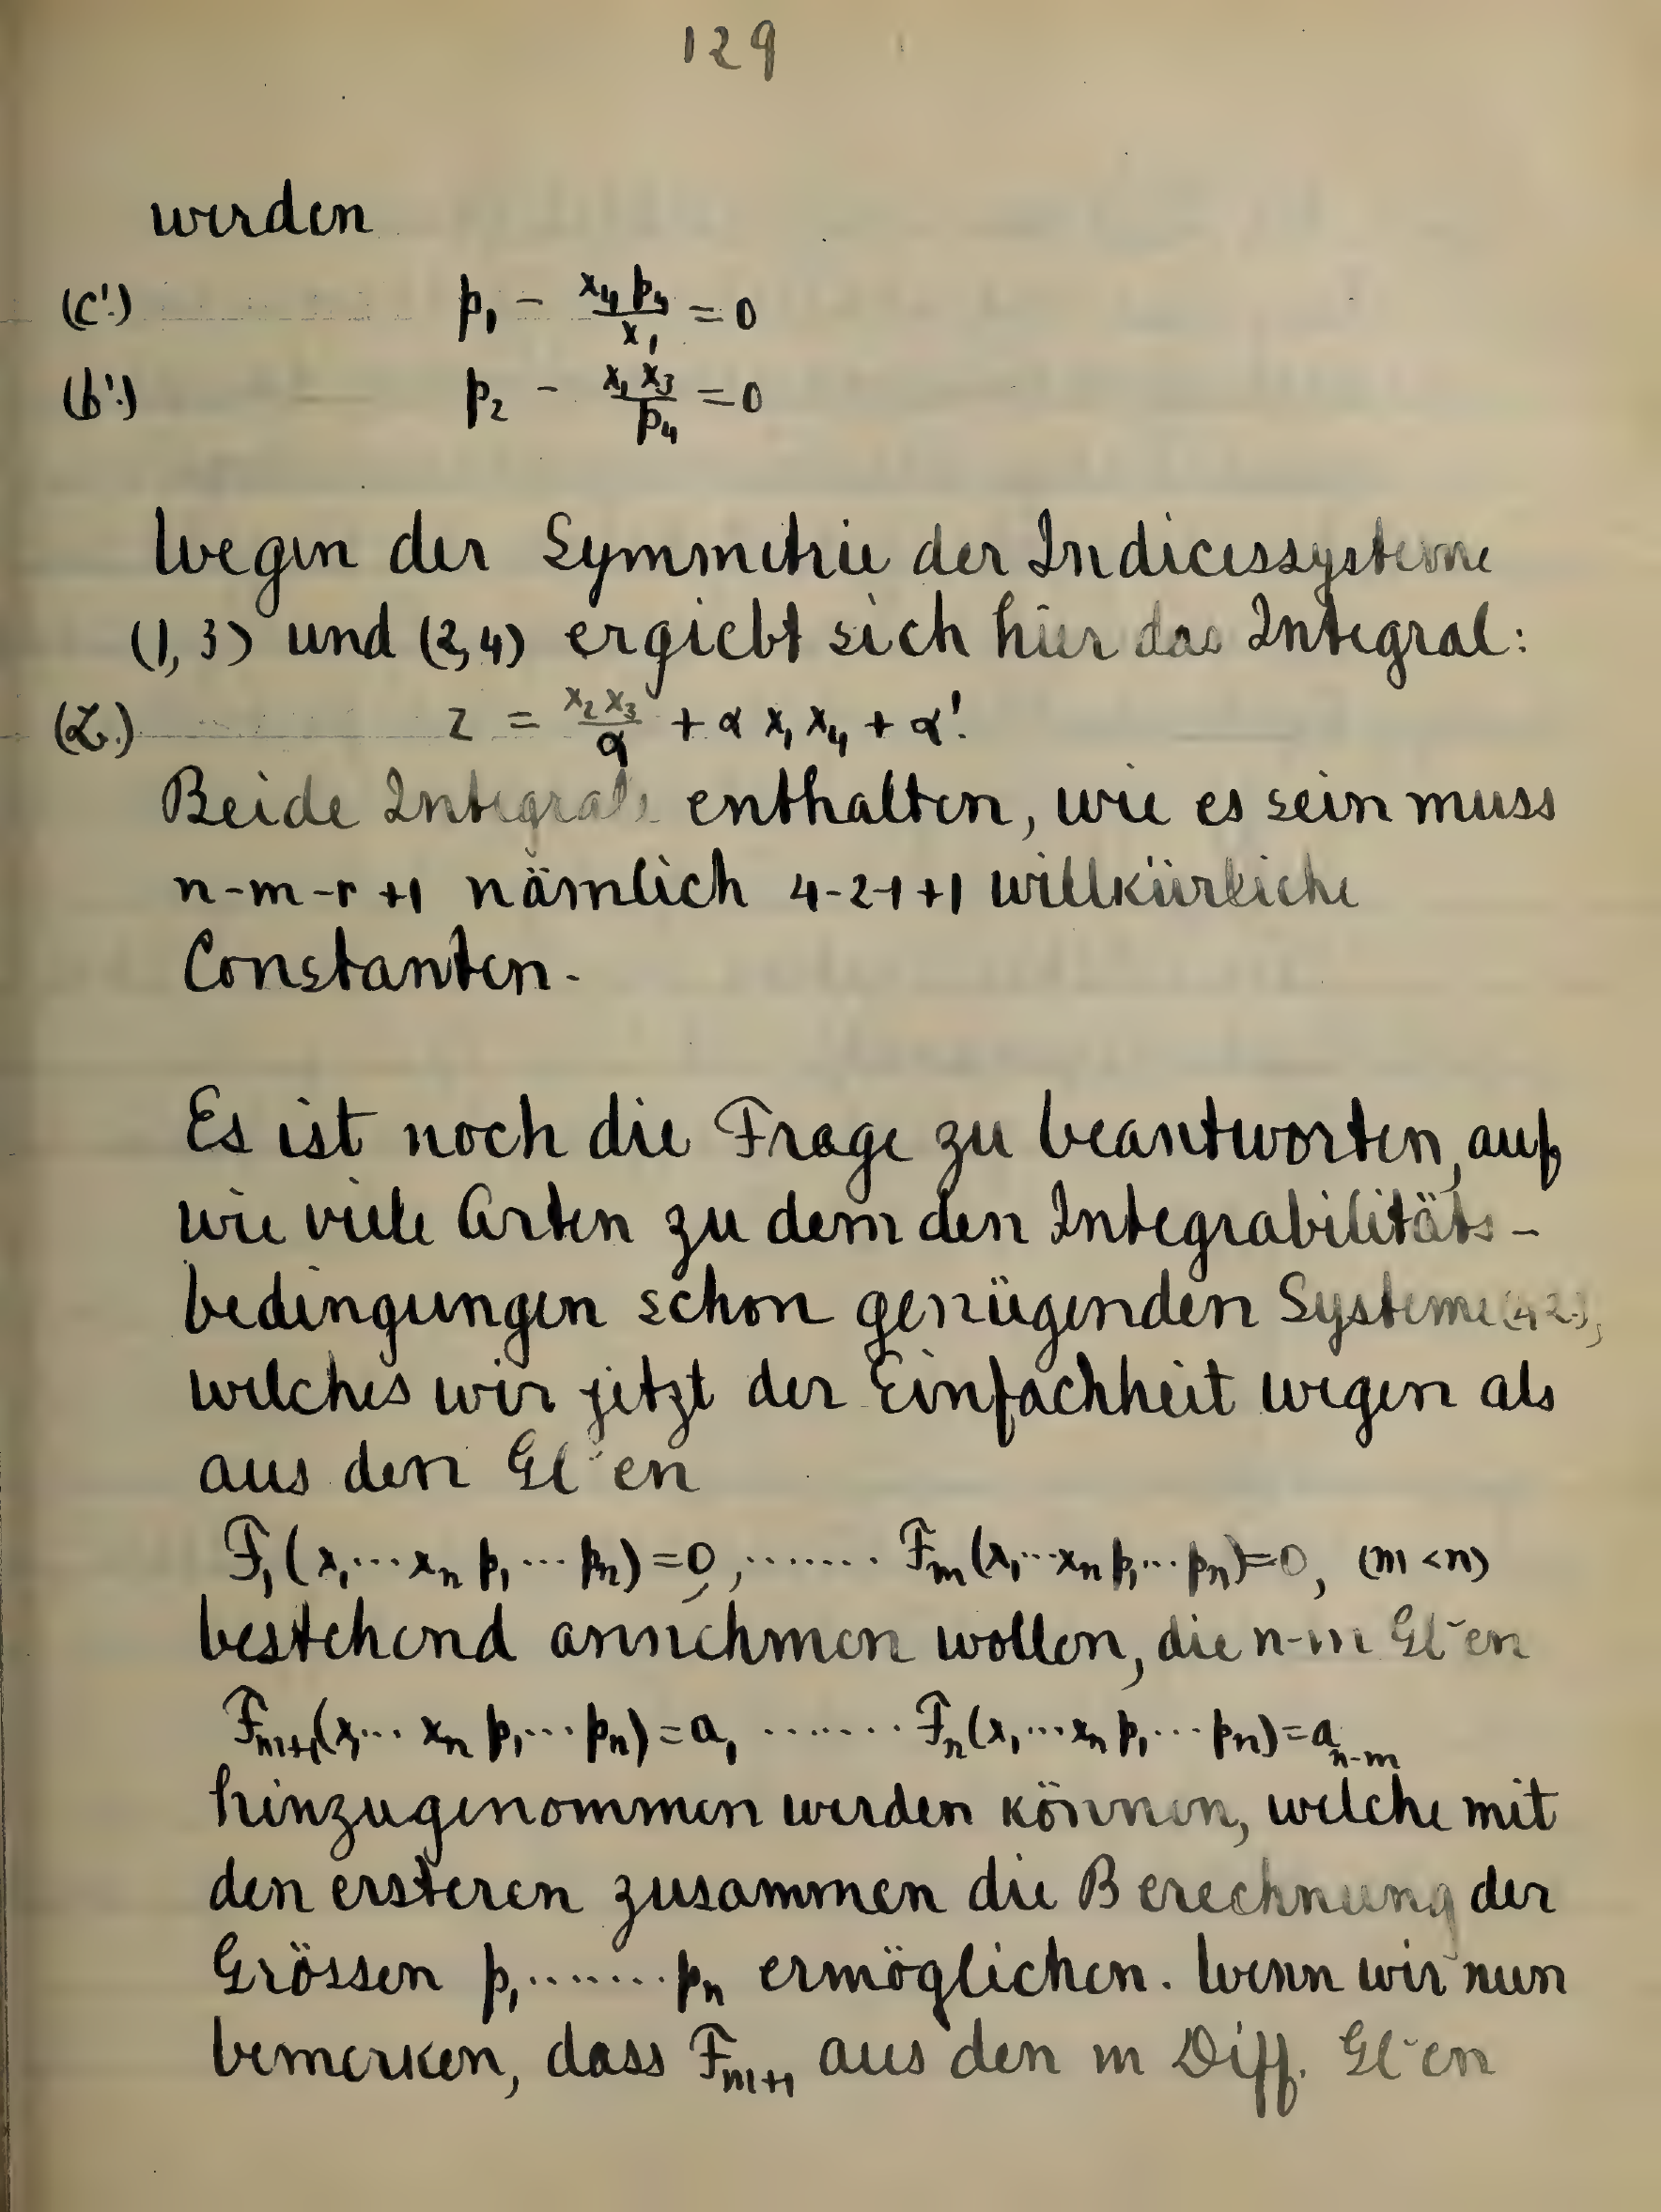 129
werden
(c'.) p₁ - x₄p₄/x₁ = 0
(b'.) p₂ - x₁x₃/p₄ = 0
Wegen der Symmetrie der Indicessysteme
(1,3) und (2,4) ergiebt sich hier das Integral:
(Z.) z = x₂x₃/α + α x₁ x₄ + α'.
Beide Integrale enthalten, wie es sein muss
n-m-r+1 nämlich 4-2-1+1 willkürliche
Constanten.
Es ist noch die Frage zu beantworten, auf
wie viele Arten zu dem den Integrabilitäts-
bedingungen schon genügenden Systeme (42.),
welches wir jetzt der Einfachheit wegen als
aus den Gl˘en
F₁(x₁...xₙ p₁...pₙ)=0, ....... Fₘ(x₁...xₙ p₁...pₙ)=0, (m<n)
bestehend annehmen wollen, die n-m Gl˘en
Fₘ₊₁(x₁... xₙ p₁...pₙ)=a₁ ....... Fₙ(x₁...xₙ p₁...pₙ)=aₙ₋ₘ
hinzugenommen werden können, welche mit
den ersteren zusammen die Berechnung der
Grössen p₁.......pₙ ermöglichen. Wenn wir nun
bemerken, dass Fₘ₊₁ aus den m Diff. Gl˘en